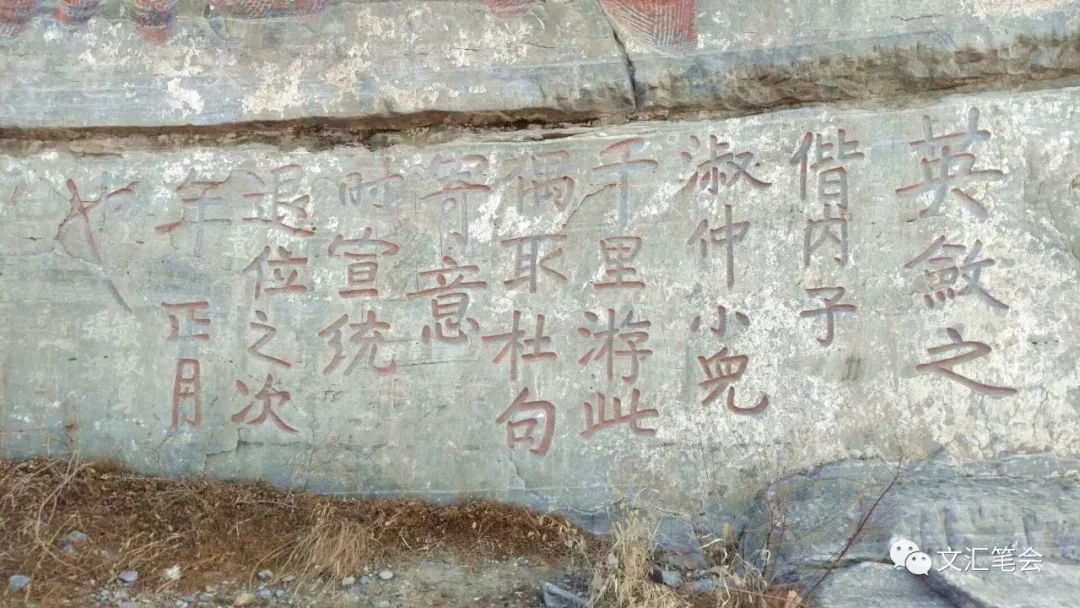 英斂之
偕内子
淑仲小兒
千里游此
偶取杜句
寄意
时宣统
退位之次
年正月
文汇笔会